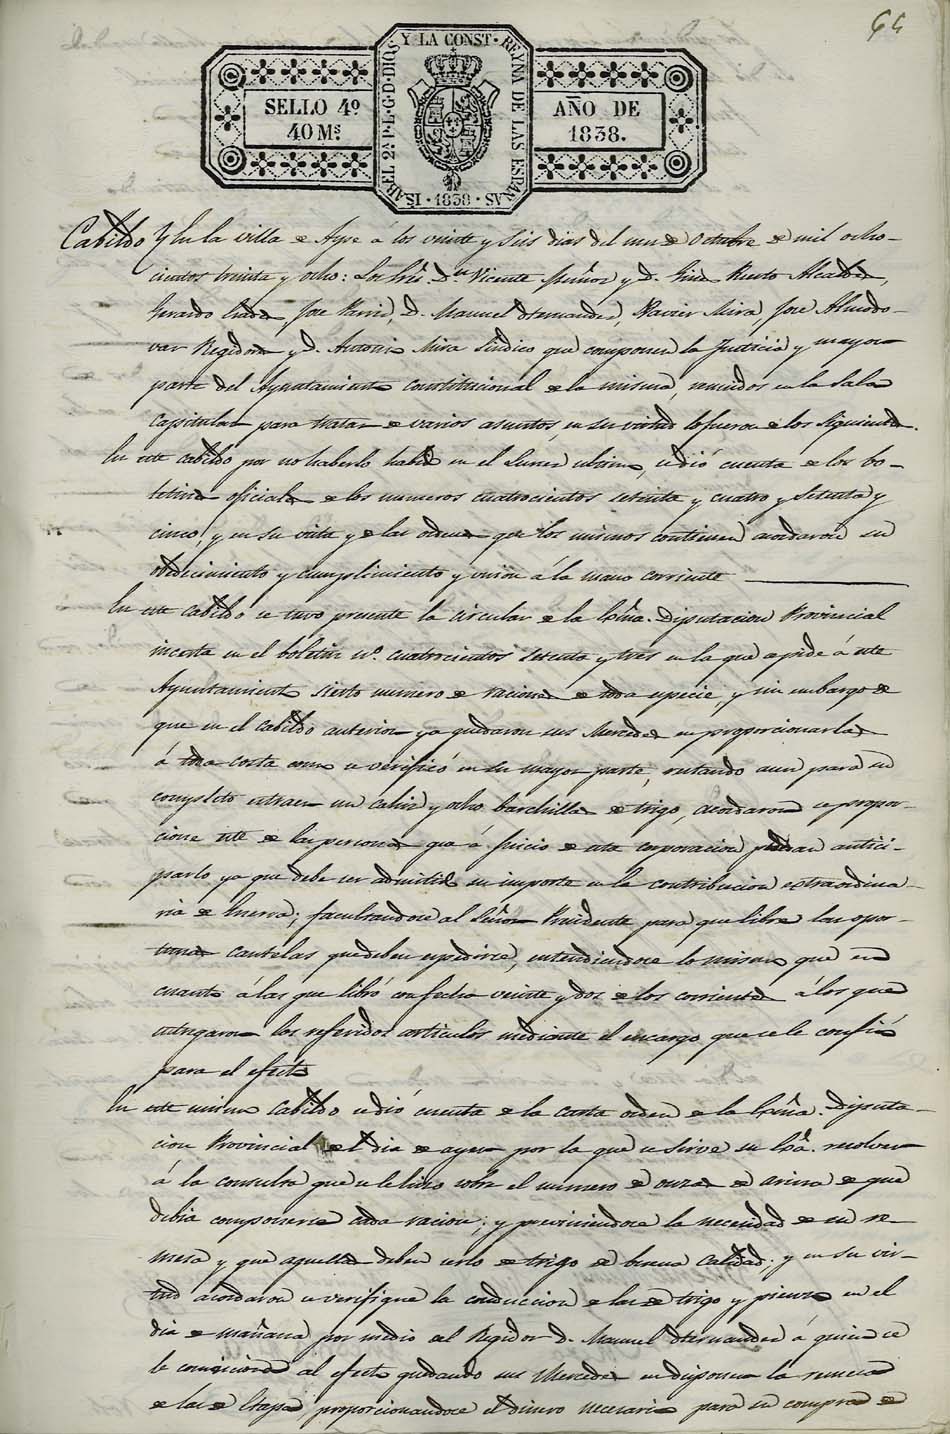 64
SELLO 4º
40 Mˢ
ISABEL 2ª P.L.G.D.DIOS Y LA CONST. REYNA DE LAS ESPAÑAS
1838
AÑO DE
1838.
Cabildo Y En la villa de Aspe á los veinte y seis dias del mes de Octubre de mil ocho-
cientos treinta y ocho: Los Sres. Dn. Vicente y D. Alcaldes,
Gerardo José D. Manuel Hernandez, Xavier Mira, José Almodo-
var Regidores y D. Antonio Mira Sindico que componen la Justicia y mayor
parte del Ayuntamiento constitucional de la misma, reunidos en la Sala
Capitular para tratar de varios asuntos, en su virtud lo fueron de los siguientes.
En este cabildo por no haberlo habido en el Lunes ultimo, se dió cuenta de los bo-
letines oficiales de los numeros cuatrocientos setenta y cuatro y setenta y
cinco, y en su vista y de las ordenes que los mismos contienen acordaron su
obedecimiento y cumplimiento y union á la mano corriente
En este cabildo se tuvo presente la circular de la Exma. Diputacion Provincial
inserta en el boletin nº. cuatrocientos setenta y tres en la que se pide á este
Ayuntamiento sierto numero de raciones de toda especie, y sin embargo de
que en el cabildo anterior ya quedaron sus Mercedes en proporcionarlas
á toda costa como se verificó en su mayor parte, restando aun para su
completo estraer un cahiz y ocho barchillas de trigo, acordaron se propor-
cione este de las personas que á juicio de esta corporacion puedan antici-
parlo ya que debe ser admitido su importe en la contribucion extraordina-
ria de Guerra; facultandose al Señor Presidente para que libre las opor-
tunas cautelas que deben espedirse, entendiendose lo mismo que en
cuanto á las que libró con fecha veinte y dos de los corrientes á los que
entregaron los referidos articulos mediante el encargo que se le confió
para el efecto
En este mismo Cabildo se dió cuenta de la carta orden de la Exma. Diputa-
cion Provincial del dia de ayer por la que se sirve su Exa. resolver
á la consulta que se le hizo sobre el numero de onzas de arina de que
debia componerse cada racion; y previniendose la necesidad de su re-
mesa y que aquellas deben serlo de trigo de buena calidad; y en su vir-
tud acordaron se verifique la conduccion de las de trigo y pienso en el
dia de mañana por medio del Regidor D. Manuel Hernandez á quien se
le comisiona al efecto quedando sus Mercedes en disponer la remesa
de las de Etapa, proporcionandose el dinero necesario para su compra de